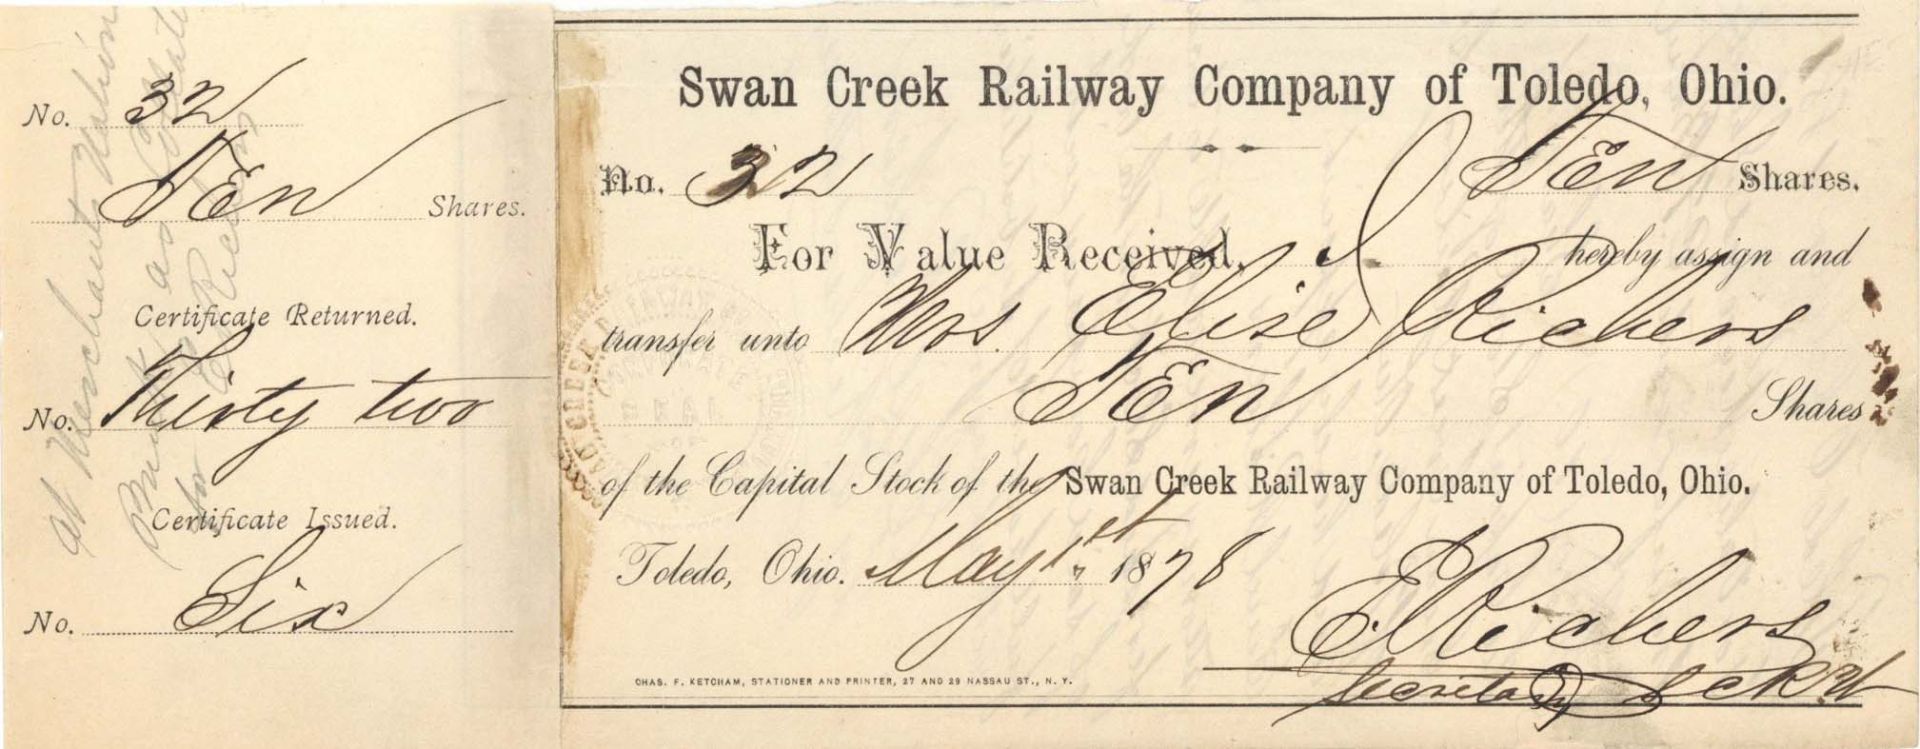 No. 32
Ten Shares.
Certificate Returned.
No. Thirty two
Certificate Issued.
No. Six
at Merchants
Swan Creek Railway Company of Toledo, Ohio.
No. 32 Ten Shares.
For Value Received, I hereby assign and
transfer unto Mrs. Elise Richers
Ten Shares
of the Capital Stock of the Swan Creek Railway Company of Toledo, Ohio.
Toledo, Ohio. May 1st, 1878
E Richers
Secretary
CHAS. F. KETCHAM, STATIONER AND PRINTER, 27 AND 29 NASSAU ST., N. Y.